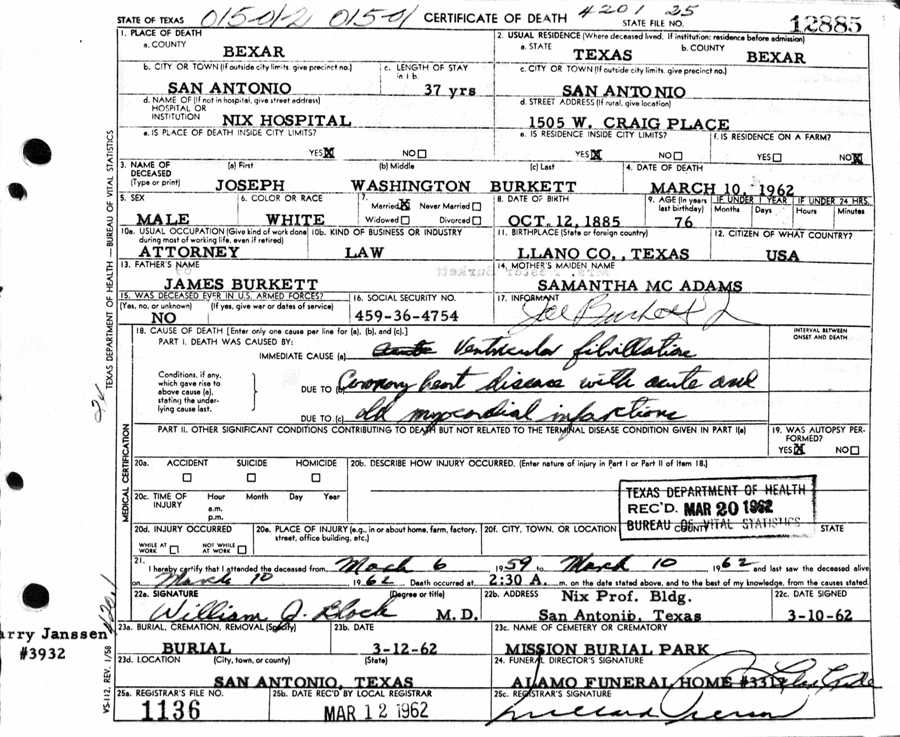 STATE OF TEXAS 015-01-2 015-01 CERTIFICATE OF DEATH 4201 25 STATE FILE NO. 12885
1. PLACE OF DEATH
a. COUNTY BEXAR
2. USUAL RESIDENCE (Where deceased lived. If institution: residence before admission)
a. STATE TEXAS b. COUNTY BEXAR
b. CITY OR TOWN (If outside city limits, give precinct no.) SAN ANTONIO
c. LENGTH OF STAY in 1 b. 37 yrs
c. CITY OR TOWN (If outside city limits, give precinct no.) SAN ANTONIO
d. NAME OF (If not in hospital, give street address) HOSPITAL OR INSTITUTION NIX HOSPITAL
d. STREET ADDRESS (If rural, give location) 1505 W. CRAIG PLACE
e. IS PLACE OF DEATH INSIDE CITY LIMITS? YES X NO
e. IS RESIDENCE INSIDE CITY LIMITS? YES X NO
f. IS RESIDENCE ON A FARM? YES NO X
3. NAME OF DECEASED (Type or print)
(a) First JOSEPH (b) Middle WASHINGTON (c) Last BURKETT
4. DATE OF DEATH MARCH 10, 1962
5. SEX MALE
6. COLOR OR RACE WHITE
7. Married X Never Married
Widowed Divorced
8. DATE OF BIRTH OCT. 12, 1885
9. AGE (In years last birthday) 76
IF UNDER 1 YEAR Months Days
IF UNDER 24 HRS. Hours Minutes
10a. USUAL OCCUPATION (Give kind of work done during most of working life, even if retired) ATTORNEY
10b. KIND OF BUSINESS OR INDUSTRY LAW
11. BIRTHPLACE (State or foreign country) LLANO CO., TEXAS
12. CITIZEN OF WHAT COUNTRY? USA
13. FATHER'S NAME JAMES BURKETT
14. MOTHER'S MAIDEN NAME SAMANTHA MC ADAMS
15. WAS DECEASED EVER IN U.S. ARMED FORCES? (Yes, no, or unknown) (If yes, give war or dates of service) NO
16. SOCIAL SECURITY NO. 459-36-4754
17. INFORMANT Joe Burkett Jr
18. CAUSE OF DEATH [Enter only one cause per line for (a), (b), and (c).]
INTERVAL BETWEEN ONSET AND DEATH
PART I. DEATH WAS CAUSED BY:
IMMEDIATE CAUSE (a) Acute Ventricular fibrillation
Conditions, if any, which gave rise to above cause (a), stating the underlying cause last.
DUE TO (b) Coronary heart disease with acute and
DUE TO (c) old myocardial infarctions
PART II. OTHER SIGNIFICANT CONDITIONS CONTRIBUTING TO DEATH BUT NOT RELATED TO THE TERMINAL DISEASE CONDITION GIVEN IN PART I(a)
19. WAS AUTOPSY PERFORMED? YES X NO
20a. ACCIDENT SUICIDE HOMICIDE
20b. DESCRIBE HOW INJURY OCCURRED. (Enter nature of injury in Part I or Part II of Item 18.)
20c. TIME OF INJURY Hour a.m. p.m. Month Day Year
TEXAS DEPARTMENT OF HEALTH
REC'D. MAR 20 1962
BUREAU OF VITAL STATISTICS
20d. INJURY OCCURRED
WHILE AT WORK NOT WHILE AT WORK
20e. PLACE OF INJURY (e.g., in or about home, farm, factory, street, office building, etc.)
20f. CITY, TOWN, OR LOCATION COUNTY STATE
21. I hereby certify that I attended the deceased from March 6 1959 to March 10 1962 and last saw the deceased alive
on March 10 1962 Death occurred at 2:30 A. m. on the date stated above, and to the best of my knowledge, from the causes stated.
22a. SIGNATURE (Degree or title) William J. Block M.D.
22b. ADDRESS Nix Prof. Bldg. San Antonio, Texas
22c. DATE SIGNED 3-10-62
23a. BURIAL, CREMATION, REMOVAL (Specify) BURIAL
23b. DATE 3-12-62
23c. NAME OF CEMETERY OR CREMATORY MISSION BURIAL PARK
23d. LOCATION (City, town, or county) (State) SAN ANTONIO, TEXAS
24. FUNERAL DIRECTOR'S SIGNATURE ALAMO FUNERAL HOME #3317
25a. REGISTRAR'S FILE NO. 1136
25b. DATE REC'D BY LOCAL REGISTRAR MAR 12 1962
25c. REGISTRAR'S SIGNATURE
arry Janssen
#3932
4201
TEXAS DEPARTMENT OF HEALTH — BUREAU OF VITAL STATISTICS
MEDICAL CERTIFICATION
VS-112, REV. 1/58